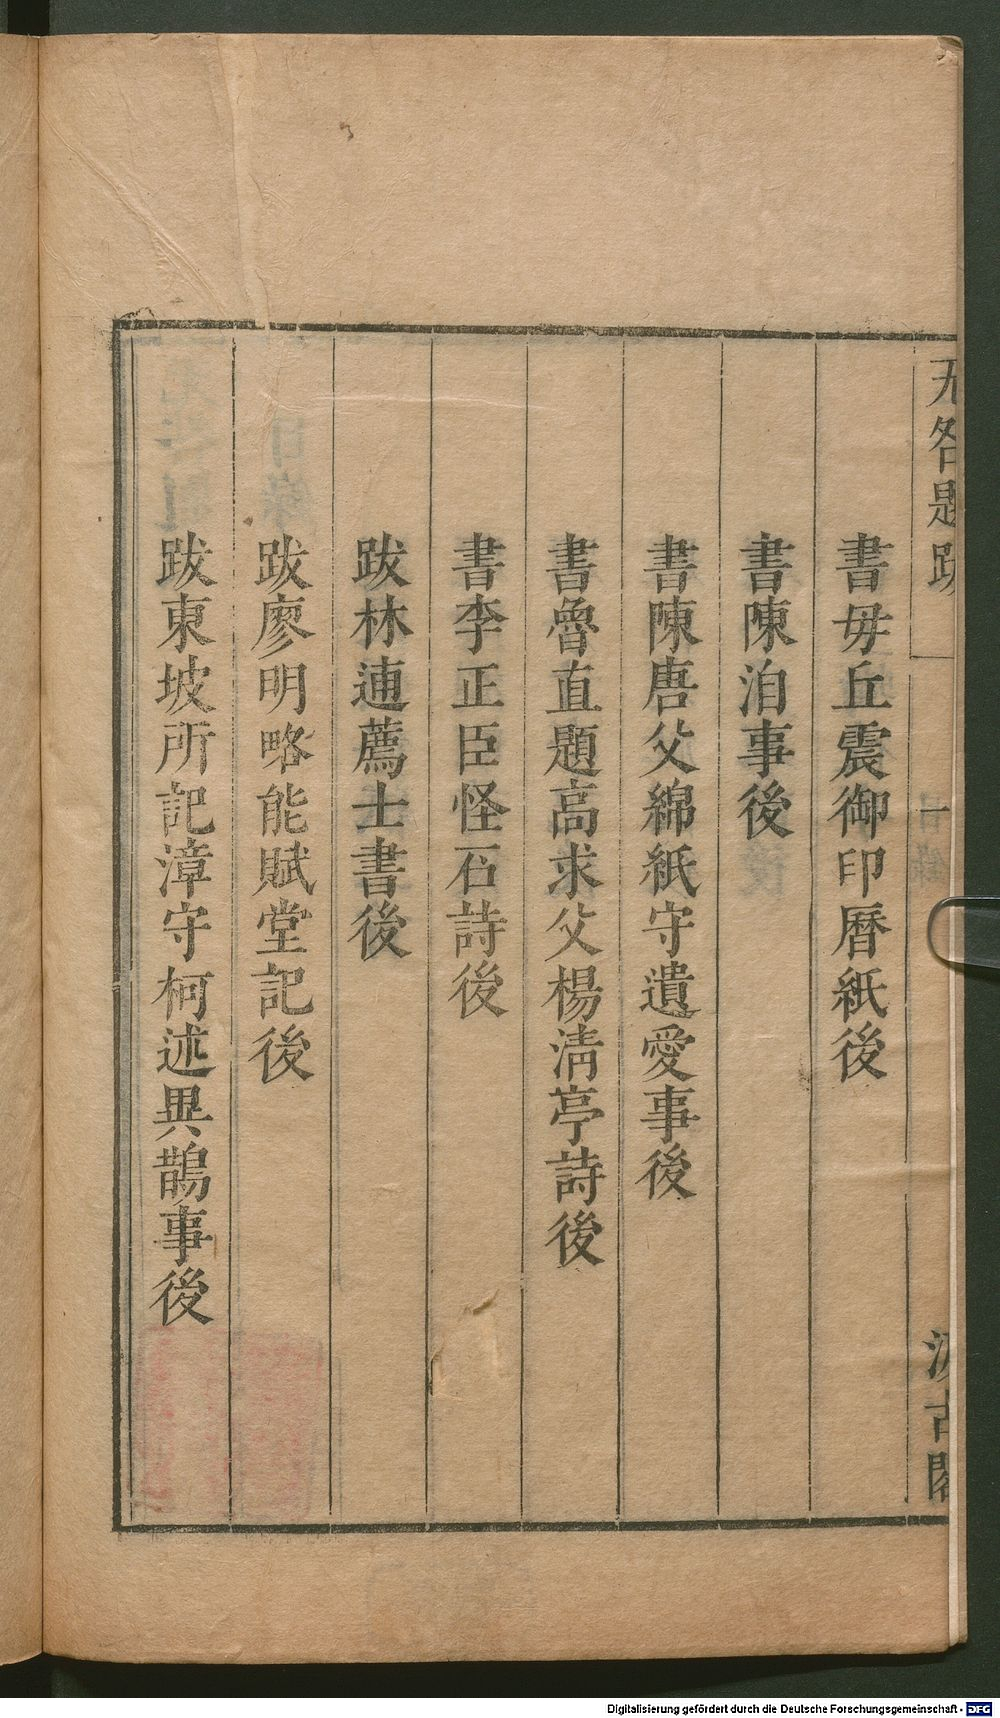 无咎題跋
一
汲古閣
書毋丘震御印曆紙後
書陳洎事後
書陳唐父綿紙守遺愛事後
書魯直題高求父楊清亭詩後
書李正臣怪石詩後
跋林逋薦士書後
跋廖明略能賦堂記後
跋東坡所記漳守柯述異鵲事後
Digitalisierung gefördert durch die Deutsche Forschungsgemeinschaft - DFG